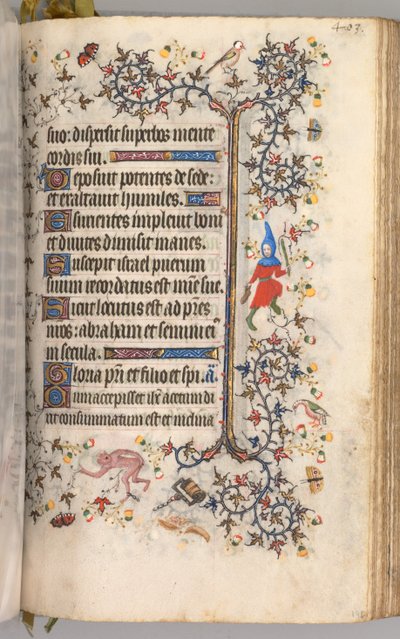 403.
suo: dispersit superbos mente
cordis sui.
Deposuit potentes de sede:
et exaltauit humiles.
Esurientes impleuit boni
et diuites dimisit inanes.
Suscepit israel puerum
suum recordatus est mīe sue.
Sicut locutus est ad pr̄es
nr̄os: abraham et semini ei
in secula.
Gloria pr̄i et filio et spī. ā.
Cum accepisset ih̄c acetum di
xit consummatum est et inclina